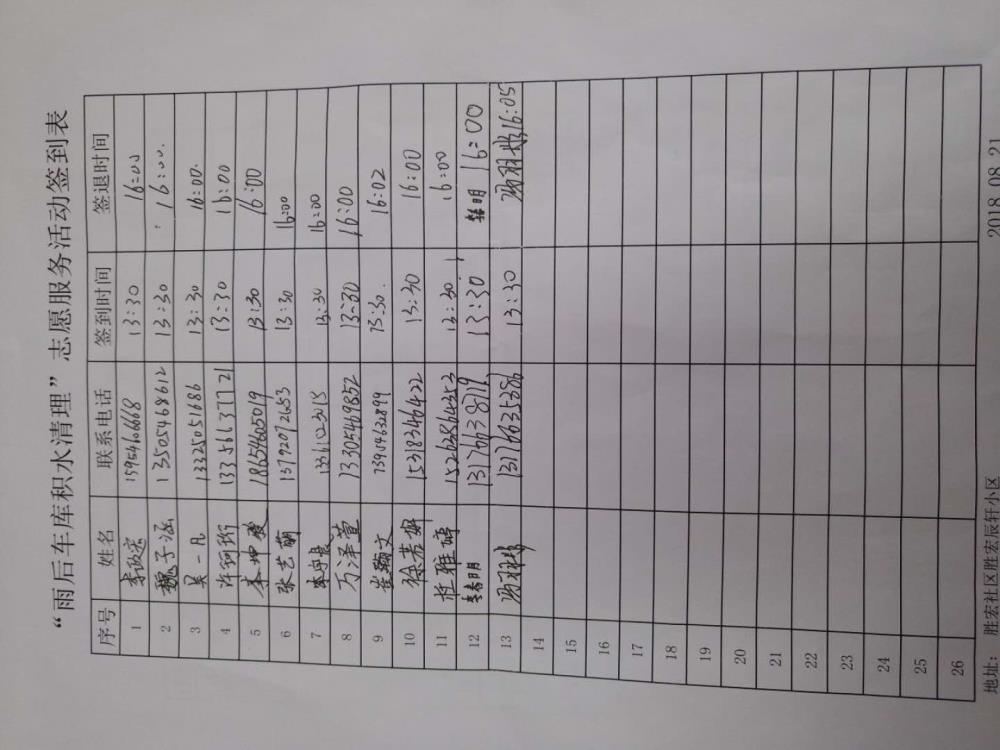 “雨后车库积水清理”志愿服务活动签到表
序号 姓名 联系电话 签到时间 签退时间
1 13:30 16:00
2 魏子涵 13505468612 13:30 16:00.
3 吴一凡 13325051686 13:30 16:00.
4 13356637721 13:30 16:00
5 18654605019 13:30 16:00
6 张艺萌 13792072683 13:30 16:00
7 13:30 16:00
8 万泽萱 13305469852 13:30 16:00
9 崔颢文 16:02
10 15318346422 13:30 16:00
11 杜雅婷 15263864353 13:30 16:00
12 13176638719 13:30 16:00
13 13176635386 13:30 16:05
14
15
16
17
18
19
20
21
22
23
24
25
26
地址：胜宏社区胜宏辰轩小区 2018.08.21